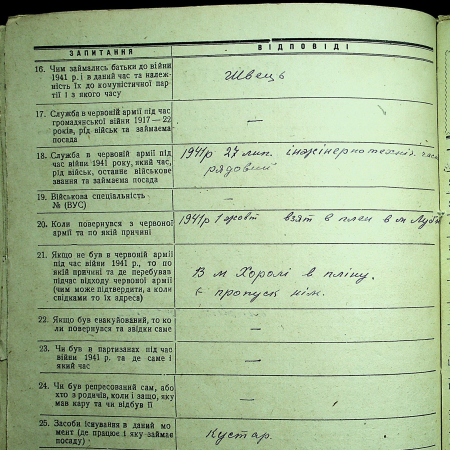 ЗАПИТАННЯ ВІДПОВІДІ
16. Чим займались батьки до війни
1941 р. і в даний час та належ-
ність їх до комуністичної пар-
тії і з якого часу
Швець
17. Служба в червоній армії під час
громадянської війни 1917—22
років, рід військ та займаєма
посада
—
18. Служба в червоній армії під
час війни 1941 року, який час,
рід військ, останнє військове
звання та займаєма посада
1941р 27 лип. інжінернотехніч. час
рядовий
19. Військова спеціальність
№ (ВУС)
—
20. Коли повернувся з червоної
армії та по якій причині
1941р 1 жовт взят в плен в м
21. Якщо не був в червоній армії
під час війни 1941 р., то по
якій причині та де перебував
підчас відходу червоної армії
(чим може підтвердити, а коли
свідками то їх адреса)
В м Хоролі в пліну.
є пропуск нім.
22. Якщо був евакуйований, то ко
ли повернувся та звідки саме
—
23. Чи був в партизанах під час
війни 1941 р. та де саме і
який час
—
24. Чи був репресований сам, або
хто з родичів, коли і защо, яку
мав кару та чи відбув її
—
25. Засоби існування в даний мо
мент (де працює і яку займає
посаду)
Кустар.